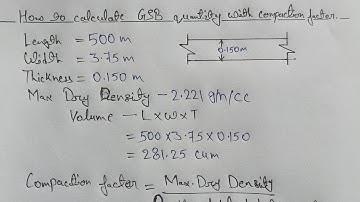 How to calculate GSB quantity with compaction factor.
Length = 500 m
Width = 3.75 m
0.150m
Thickness = 0.150 m
Max Dry Density - 2.221 gm/cc
Volume - L x W x T
= 500 x 3.75 x 0.150
= 281.25 cum
Compaction factor = Max. Dry Density